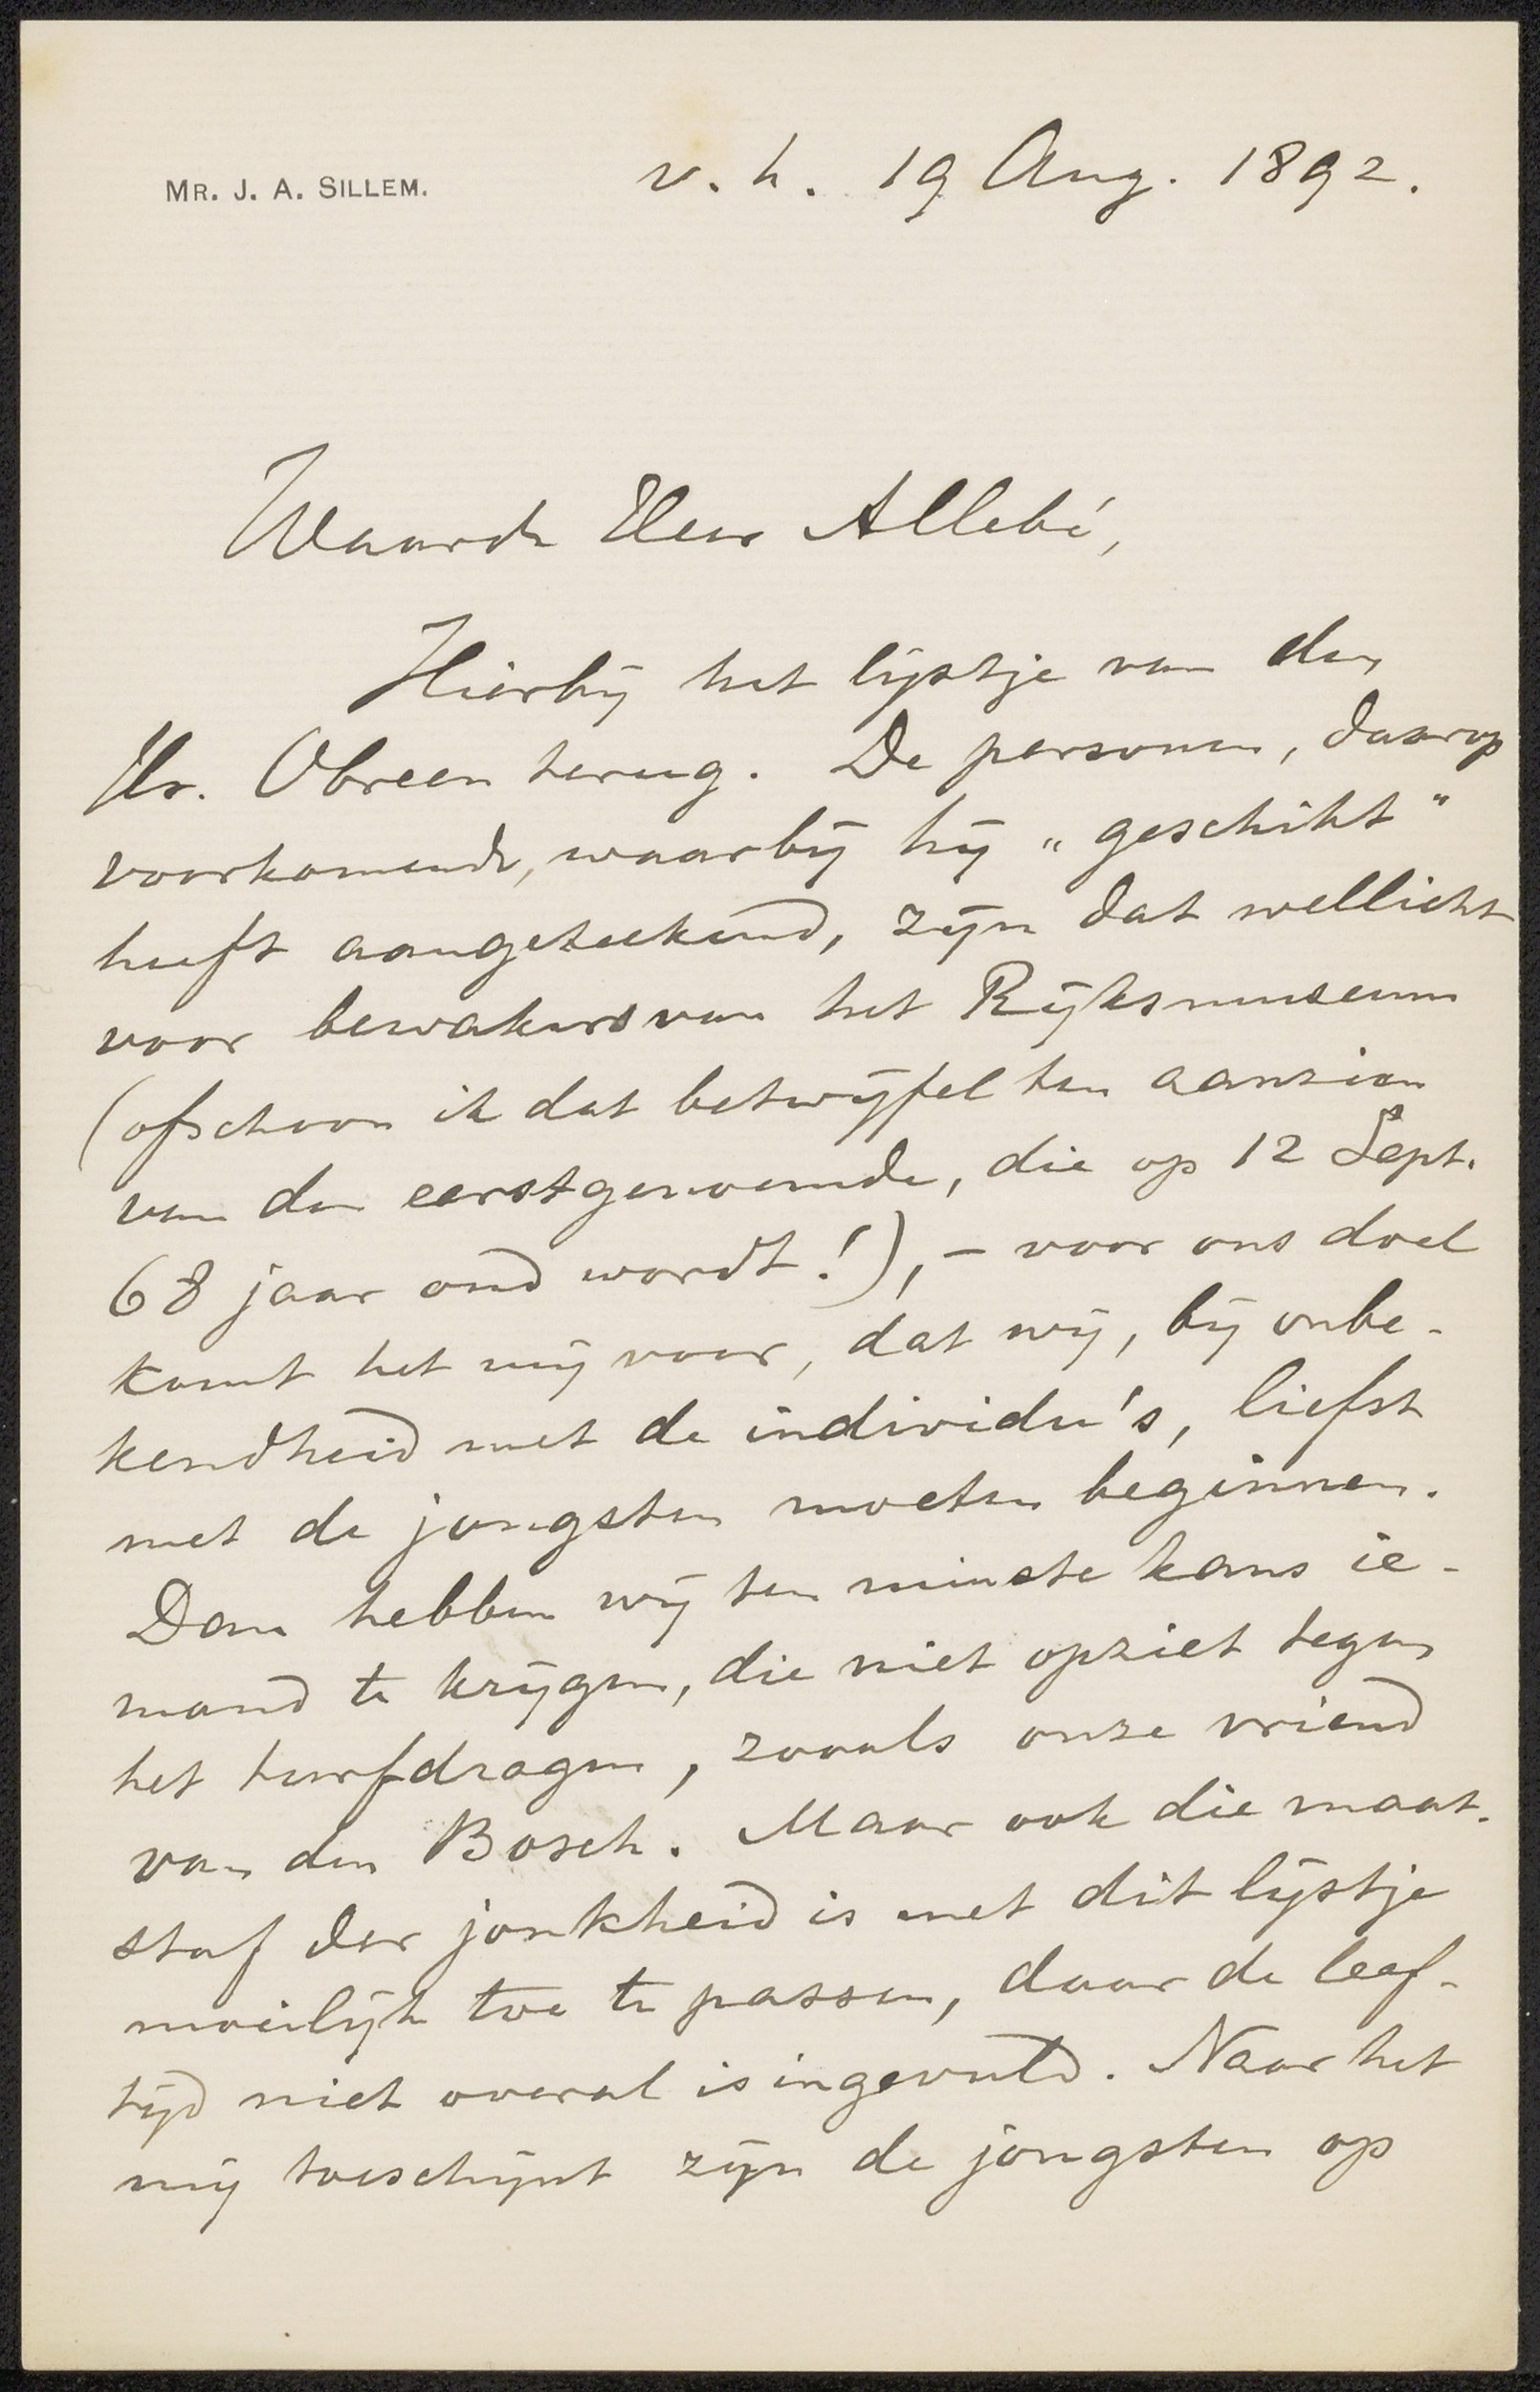 MR. J. A. SILLEM.
v. h. 19 Aug. 1892.
Waarde Heer Allebé,
Hierbij het lijstje van den
Hr. Obreen terug. De personen, daarop
voorkomende, waarbij hij „geschikt"
heeft aangeteekend, zijn dat wellicht
voor bewakers van het Rijksmuseum
(ofschoon ik dat betwijfel ten aanzien
van den eerstgenoemde, die op 12 Sept.
68 jaar oud wordt!), – voor ons doel
komt het mij voor, dat wij, bij onbe-
kendheid met de individu's, liefst
met de jongsten moeten beginnen.
Dan hebben wij ten minste kans ie-
mand te krijgen, die niet opziet tegen
het turfdragen, zooals onze vriend
van den Bosch. Maar ook die maat-
staf der jonkheid is met dit lijstje
moeilijk toe te passen, daar de leef-
tijd niet overal is ingevuld. Naar het
mij toeschijnt zijn de jongsten op